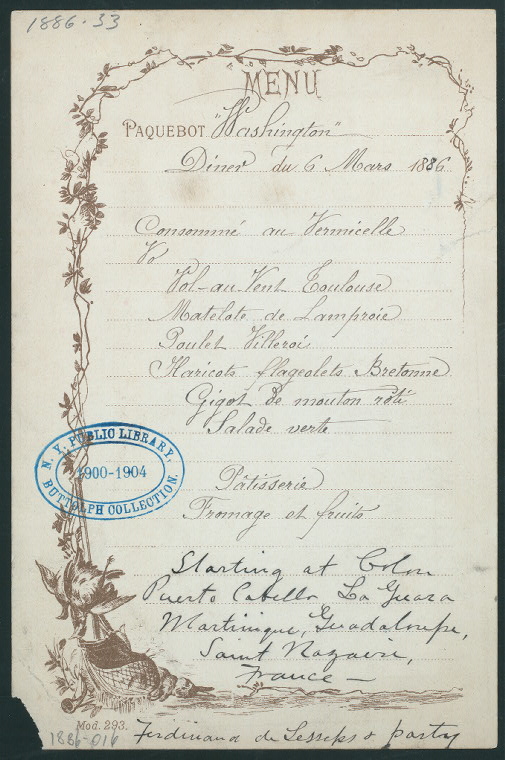 1886.33
MENU
PAQUEBOT "Washington"
Dîner du 6 Mars 1886
Consommé au Vermicelle
Vo
Vol-au-Vent Toulouse
Matelote de Lamproie
Poulet Villerois
Haricots flageolets Bretonne
Gigot de mouton rôti
Salade verte
N. Y. PUBLIC LIBRARY,
1900-1904
BUTTOLPH COLLECTION.
Pâtisserie
Fromage et fruits
Starting at Colon
Puerto Cabello La Guara
Martinique, Guadaloupe,
Saint Nazaire,
France —
Mod. 293.
1886-016
Ferdinand de Lesseps & party